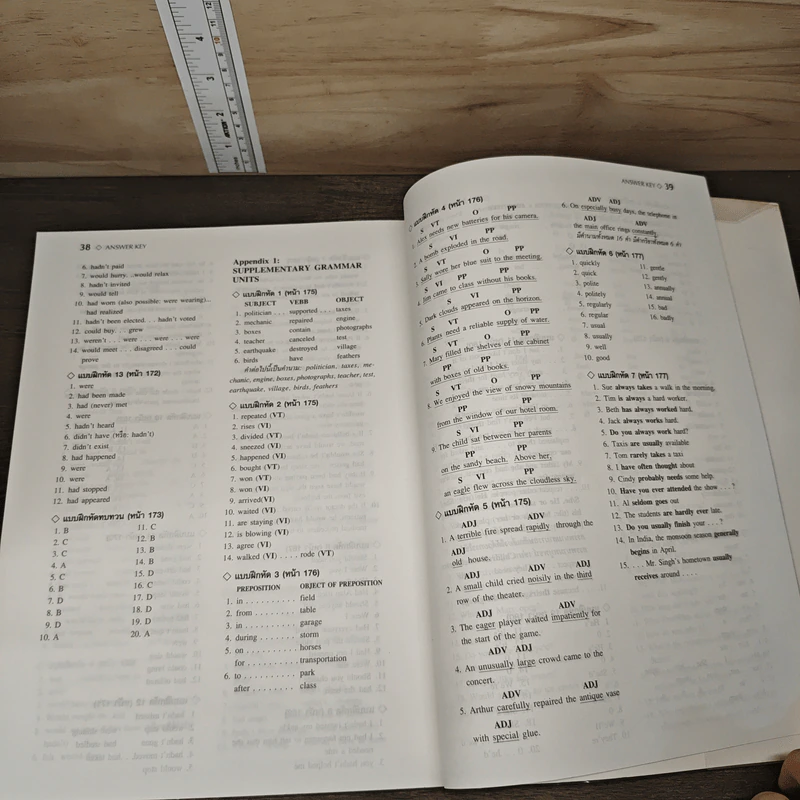 38 ◇ ANSWER KEY
6. hadn't paid
7. would hurry...would relax
8. hadn't invited
9. would tell
10. had worn (also possible: were wearing)...
had realized
11. hadn't been elected...hadn't voted
12. could buy...grew
13. weren't...were...were...were
14. would meet...disagreed...could
prove
◇ แบบฝึกหัด 13 (หน้า 172)
1. were
2. had been made
3. had (never) met
4. were
5. hadn't heard
6. didn't have (หรือ: hadn't)
7. didn't exist
8. had happened
9. were
10. were
11. had stopped
12. had appeared
◇ แบบฝึกหัดทบทวน (หน้า 173)
1. B
2. C
3. C
4. A
5. C
6. B
7. D
8. B
9. D
10. A
11. C
12. B
13. B
14. B
15. D
16. C
17. D
18. D
19. D
20. A
Appendix 1:
SUPPLEMENTARY GRAMMAR
UNITS
◇ แบบฝึกหัด 1 (หน้า 175)
SUBJECT VERB OBJECT
1. politician... supported... taxes
2. mechanic repaired engine
3. boxes contain photographs
4. teacher canceled test
5. earthquake destroyed village
6. birds have feathers
คำต่อไปนี้เป็นคำนาม: politician, taxes, me-
chanic, engine, boxes, photographs, teacher, test,
earthquake, village, birds, feathers
◇ แบบฝึกหัด 2 (หน้า 175)
1. repeated (VT)
2. rises (VI)
3. divided (VT)
4. sneezed (VI)
5. happened (VI)
6. bought (VT)
7. won (VT)
8. won (VI)
9. arrived(VI)
10. waited (VI)
11. are staying (VI)
12. is blowing (VI)
13. agree (VI)
14. walked (VI) .... rode (VT)
◇ แบบฝึกหัด 3 (หน้า 176)
PREPOSITION OBJECT OF PREPOSITION
1. in .......... field
2. from ........ table
3. in .......... garage
4. during ....... storm
5. on .......... horses
for .......... transportation
6. to .......... park
after ........ class
ANSWER KEY ◇ 39
◇ แบบฝึกหัด 4 (หน้า 176)
S VT O PP
1. Alex needs new batteries for his camera.
S VI PP
2. A bomb exploded in the road.
S VT O PP
3. Sally wore her blue suit to the meeting.
S VI PP PP
4. Jim came to class without his books.
S VI PP
5. Dark clouds appeared on the horizon.
S VT O PP
6. Plants need a reliable supply of water.
S VT O PP
7. Mary filled the shelves of the cabinet
PP PP
with boxes of old books.
S VT O PP
8. We enjoyed the view of snowy mountains
PP PP
from the window of our hotel room.
S VI PP
9. The child sat between her parents
PP PP
on the sandy beach. Above her,
S VI PP
an eagle flew across the cloudless sky.
◇ แบบฝึกหัด 5 (หน้า 175)
ADJ ADV
1. A terrible fire spread rapidly through the
ADJ
old house.
ADJ ADV ADJ
2. A small child cried noisily in the third
row of the theater.
ADJ ADV
3. The eager player waited impatiently for
the start of the game.
ADV ADJ
4. An unusually large crowd came to the
concert.
ADV ADJ
5. Arthur carefully repaired the antique vase
ADJ
with special glue.
ADV ADJ
6. On especially busy days, the telephone in
ADJ ADV
the main office rings constantly.
มีคำนามทั้งหมด 16 คำ มีคำกริยาทั้งหมด 6 คำ
◇ แบบฝึกหัด 6 (หน้า 177)
1. quickly
2. quick
3. polite
4. politely
5. regularly
6. regular
7. usual
8. usually
9. well
10. good
11. gentle
12. gently
13. annually
14. annual
15. bad
16. badly
◇ แบบฝึกหัด 7 (หน้า 177)
1. Sue always takes a walk in the morning.
2. Tim is always a hard worker.
3. Beth has always worked hard.
4. Jack always works hard.
5. Do you always work hard?
6. Taxis are usually available
7. Tom rarely takes a taxi
8. I have often thought about
9. Cindy probably needs some help.
10. Have you ever attended the show...?
11. Al seldom goes out
12. The students are hardly ever late.
13. Do you usually finish your...?
14. In India, the monsoon season generally
begins in April.
15. ... Mr. Singh's hometown usually
receives around ....